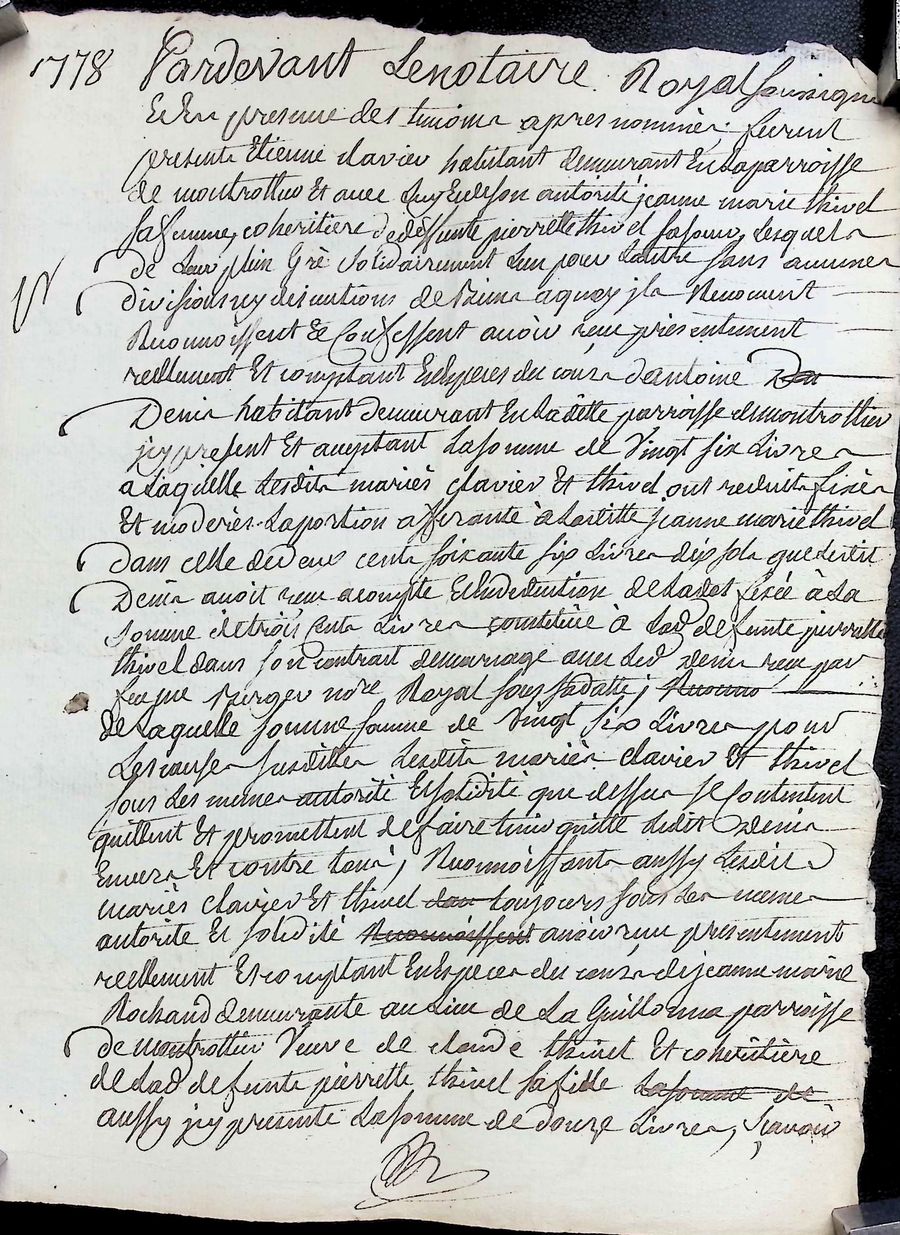 1778 Pardevant Le notaire Royal soussigné
Et En presence des temoins apres nommés, furent
presents Etienne clavier habitant demeurant En la parroisse
de montrottier Et avec luy Et de son autorité jeanne marie thivel
sa femme, coheritiere de deffunte pierrette thivel sa soeur, Lesquels
de Leur plein Gré solidairement L'un pour L'autre sans aucunes
divisions ny discutions de Biens a quoy ils Renoncent
Reconnoissent Et Confessent avoir reçu presentement
reellement Et comptant En Especes du cours d'antoine
Denis habitant demeurant En Laditte parroisse de montrottier
jcy present Et acceptant La somme de Vingt six Livres
a Laquelle Lesdits mariés clavier Et thivel ont reduits fixés
Et moderés La portion afferante à Laditte jeanne marie thivel
dans celle de deux cents soixante six Livres dix sols que Ledit
Denis avoit reçu acompte Et En deduction de La dot fixée à La
somme de trois cents Livres constituée à Lad. defunte pierrette
thivel dans son contrat de mariage avec Led. denis reçu par
feu me Berger nore Royal sous sa datte;
de Laquelle somme somme de Vingt six Livres pour
Les causes susdittes Lesdits mariés clavier Et thivel
sous Les memes autorité Et solidité que dessus se contentent
quittent Et promettent de faire tenir quitte Ledit Denis
Envers Et contre tous; Reconnoissants aussy Lesdits
mariés clavier Et thivel toujours sous Les memes
autorité Et solidité Reconnoissent avoir reçu presentement
reellement Et comptant En Especes du cours de jeanne marie
Rochand demeurante au Lieu de La Guillonna parroisse
de montrottier Veuve de claude thivel Et coheritiere
de Lad. defunte pierrette thivel sa fille La somme de
aussy jcy presente La somme de douze Livres, sçavoir